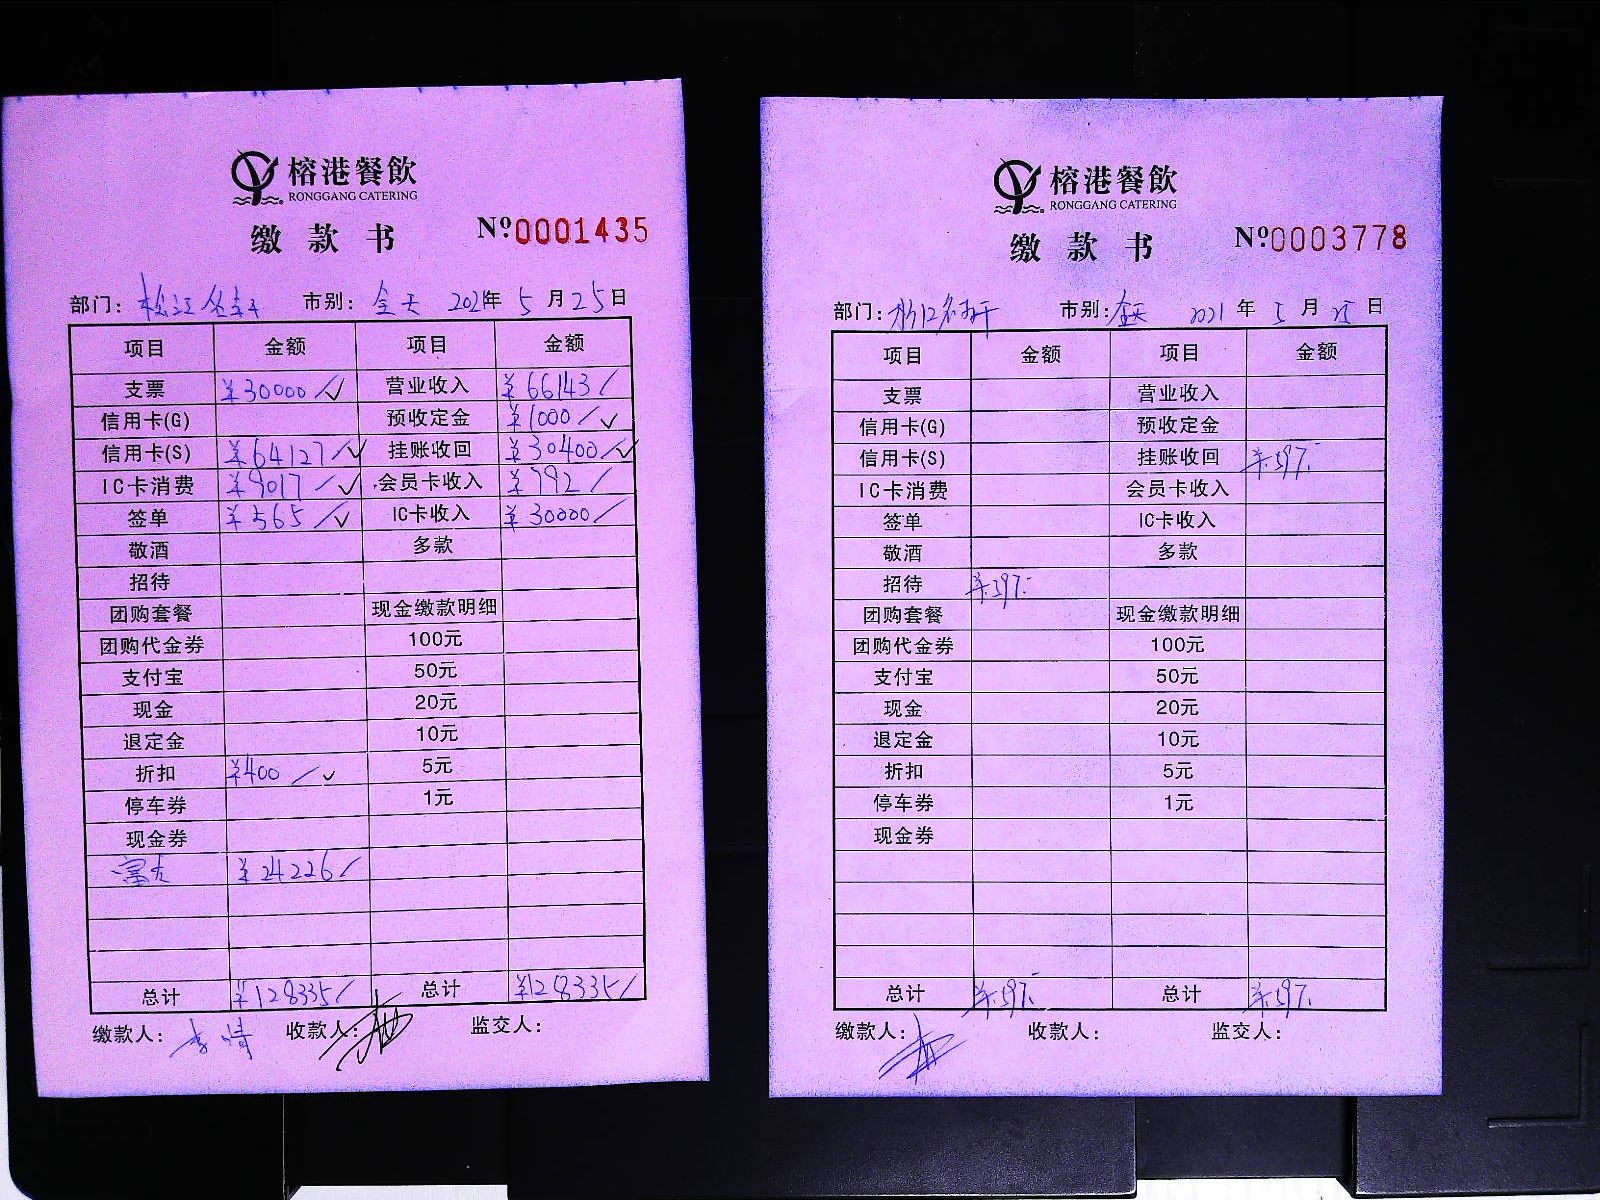 榕港餐飲
RONGGANG CATERING
缴款书 Nº0001435
部门：松江名轩 市别：全天 2021年5月25日
项目 金额 项目 金额
支票 ¥30000 营业收入 ¥66143
信用卡(G) 预收定金 ¥1000
信用卡(S) ¥64127 挂账收回 ¥30400
IC卡消费 ¥9017 会员卡收入 ¥792
签单 ¥565 IC卡收入 ¥30000
敬酒 多款
招待
团购套餐 现金缴款明细
团购代金券 100元
支付宝 50元
现金 20元
退定金 10元
折扣 ¥400 5元
停车券 1元
现金券
¥24226
总计 ¥128335 总计 ¥128335
缴款人：李晴 收款人： 监交人：
榕港餐飲
RONGGANG CATERING
缴款书 Nº0003778
部门：松江名轩 市别：全天 2021年5月25日
项目 金额 项目 金额
支票 营业收入
信用卡(G) 预收定金
信用卡(S) 挂账收回 ¥597.-
IC卡消费 会员卡收入
签单 IC卡收入
敬酒 多款
招待 ¥597.-
团购套餐 现金缴款明细
团购代金券 100元
支付宝 50元
现金 20元
退定金 10元
折扣 5元
停车券 1元
现金券
总计 ¥597.- 总计 ¥597.-
缴款人： 收款人： 监交人：